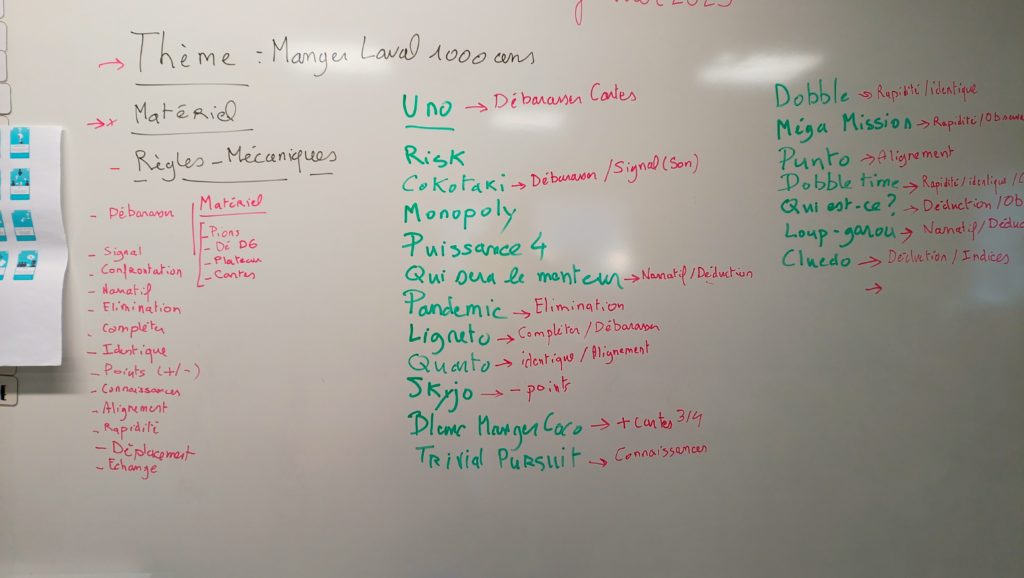 → Thème : Manger Laval 1000 ans
→ Matériel
- Règles - Mécaniques
- Débarasser
- Signal
- Confrontation
- Narratif
- Elimination
- Compléter
- Identique
- Points (+/-)
- Connaissances
- Alignement
- Rapidité
- Déplacement
- Echange
Matériel
- Pions
- Dé D6
- Plateau
- Cartes
Uno → Débarasser Cartes
Risk
Cokotaki → Débarasser / Signal (Son)
Monopoly
Puissance 4
Qui sera le menteur → Narratif / Déduction
Pandemic → Elimination
Ligreto → Compléter / Débarasser
Quanto → identique / Alignement
Skyjo → - points
Blanc Manger Coco → + cartes 3/4
Trivial Pursuit → Connaissances
Dobble → Rapidité / identique
Méga Mission → Rapidité / Observa
Punto → Alignement
Dobble time → Rapidité / identique /
Qui est-ce ? → Déduction / Ob
Loup-garou → Narratif / Déduc
Cluedo → Déduction / Indices
→